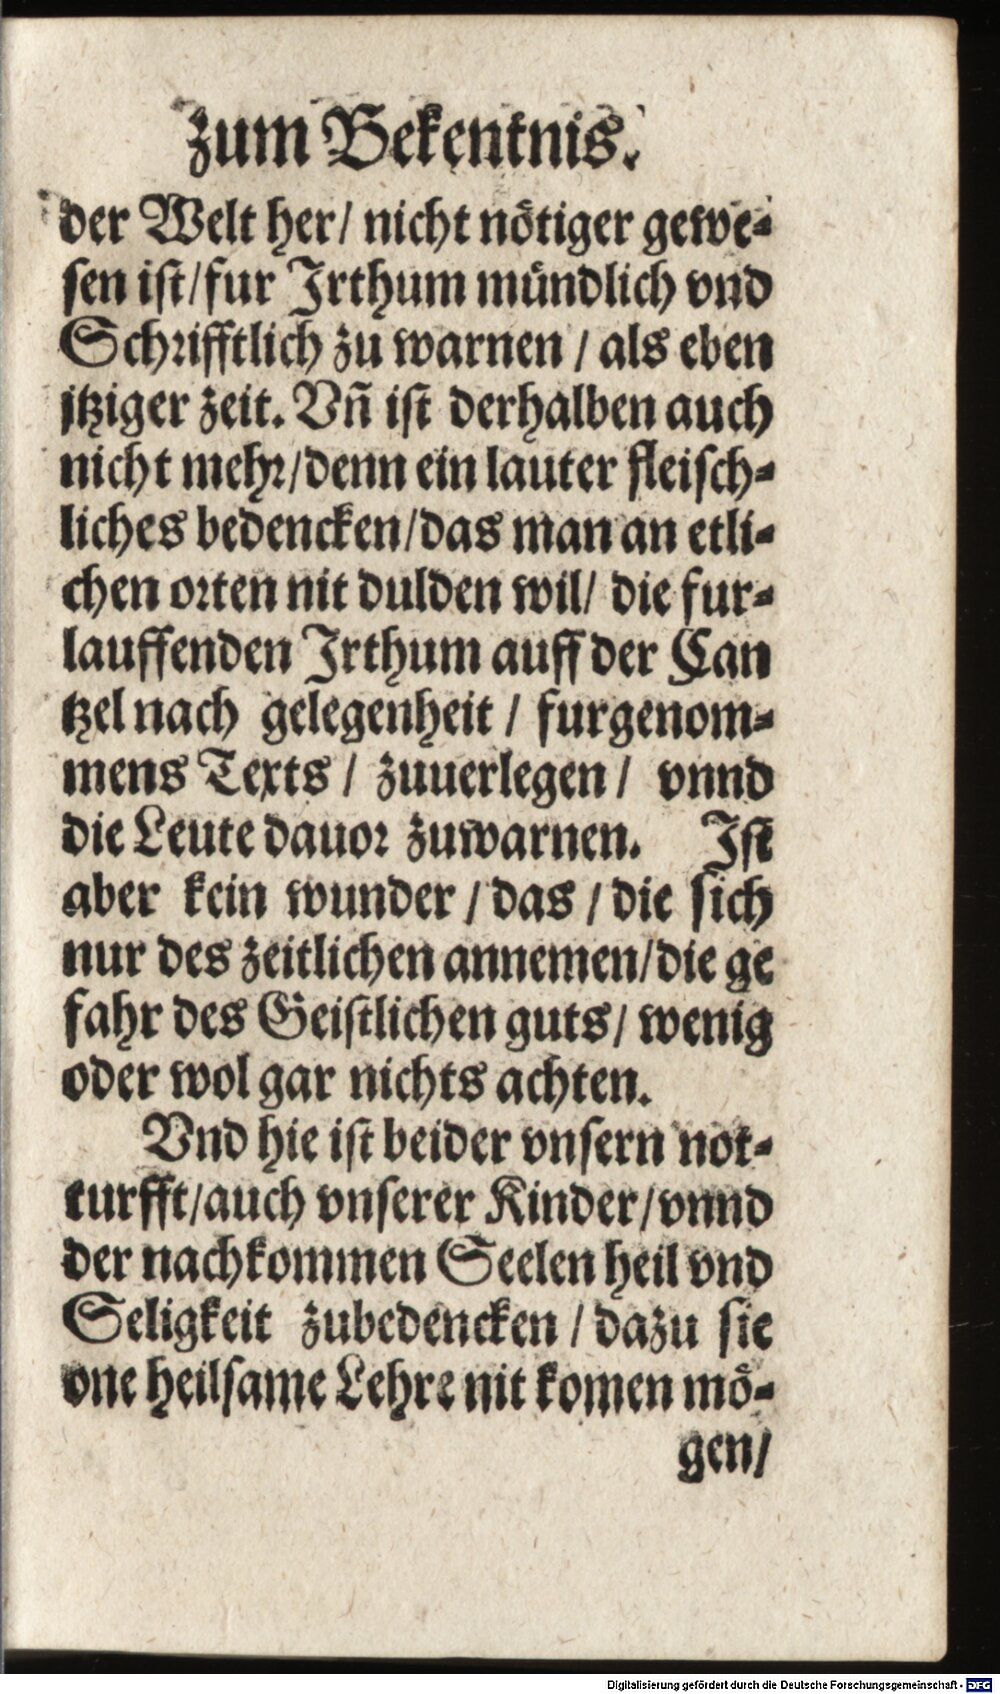 zum Bekentnis.
der Welt her/ nicht nötiger gewe-
sen ist/fur Irthum mündlich vnd
Schrifftlich zu warnen / als eben
jtziger zeit. Vñ ist derhalben auch
nicht mehr/denn ein lauter fleisch-
liches bedencken/das man an etli-
chen orten nit dulden wil/ die fur-
lauffenden Irthum auff der Can
tzel nach gelegenheit / furgenom-
mens Texts / zuuerlegen / vnnd
die Leute dauor zuwarnen. Ist
aber kein wunder / das / die sich
nur des zeitlichen annemen/die ge
fahr des Geistlichen guts/ wenig
oder wol gar nichts achten.
Vnd hie ist beider vnsern not-
turfft/auch vnserer Kinder/vnnd
der nachkommen Seelen heil vnd
Seligkeit zubedencken / dazu sie
one heilsame Lehre nit komen mö-
gen/
Digitalisierung gefördert durch die Deutsche Forschungsgemeinschaft - DFG